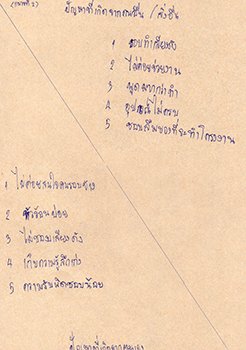 (ภาพที่ 2)
ปัญหาที่เกิดจากคนอื่น / สิ่งอื่น
1 ชอบทำเสียงดัง
2 ไม่ค่อยช่วยงาน
3 พูดมากกว่าทำ
4 อุปกรณ์ไม่ครบ
5 ชอบลืมของที่จะทำโครงงาน
1 ไม่ค่อยสนใจคนรอบข้าง
2 หัวร้อนบ่อย
3 ไม่ชอบเสียงดัง
4 เก็บความรู้สึกเก่ง
5 ความรับผิดชอบน้อย
ปัญหาที่เกิดจากตนเอง